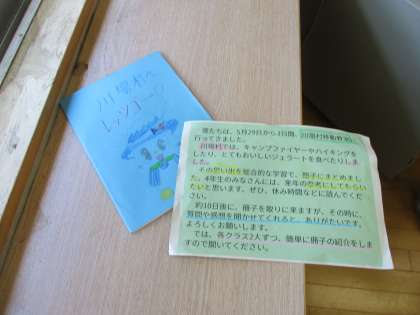 川場村へ
レッツゴー!
僕たちは、5月29日から3日間、川場村移動教室に
行ってきました。
川場村では、キャンプファイヤーやハイキングを
したり、とてもおいしいジェラートを食べたりしま
した。
その思い出を総合的な学習で、冊子にまとめまし
た。4年生のみなさんには、来年の参考にしてもらい
たいと思います。ぜひ、休み時間などに読んでくだ
さい。
約10日後に、冊子を取りに来ますが、その時に、
質問や感想を聞かせてくれると、ありがたいです。
よろしくお願いします。
では、各クラス2人ずつ、簡単に冊子の紹介をしま
すので聞いてください。